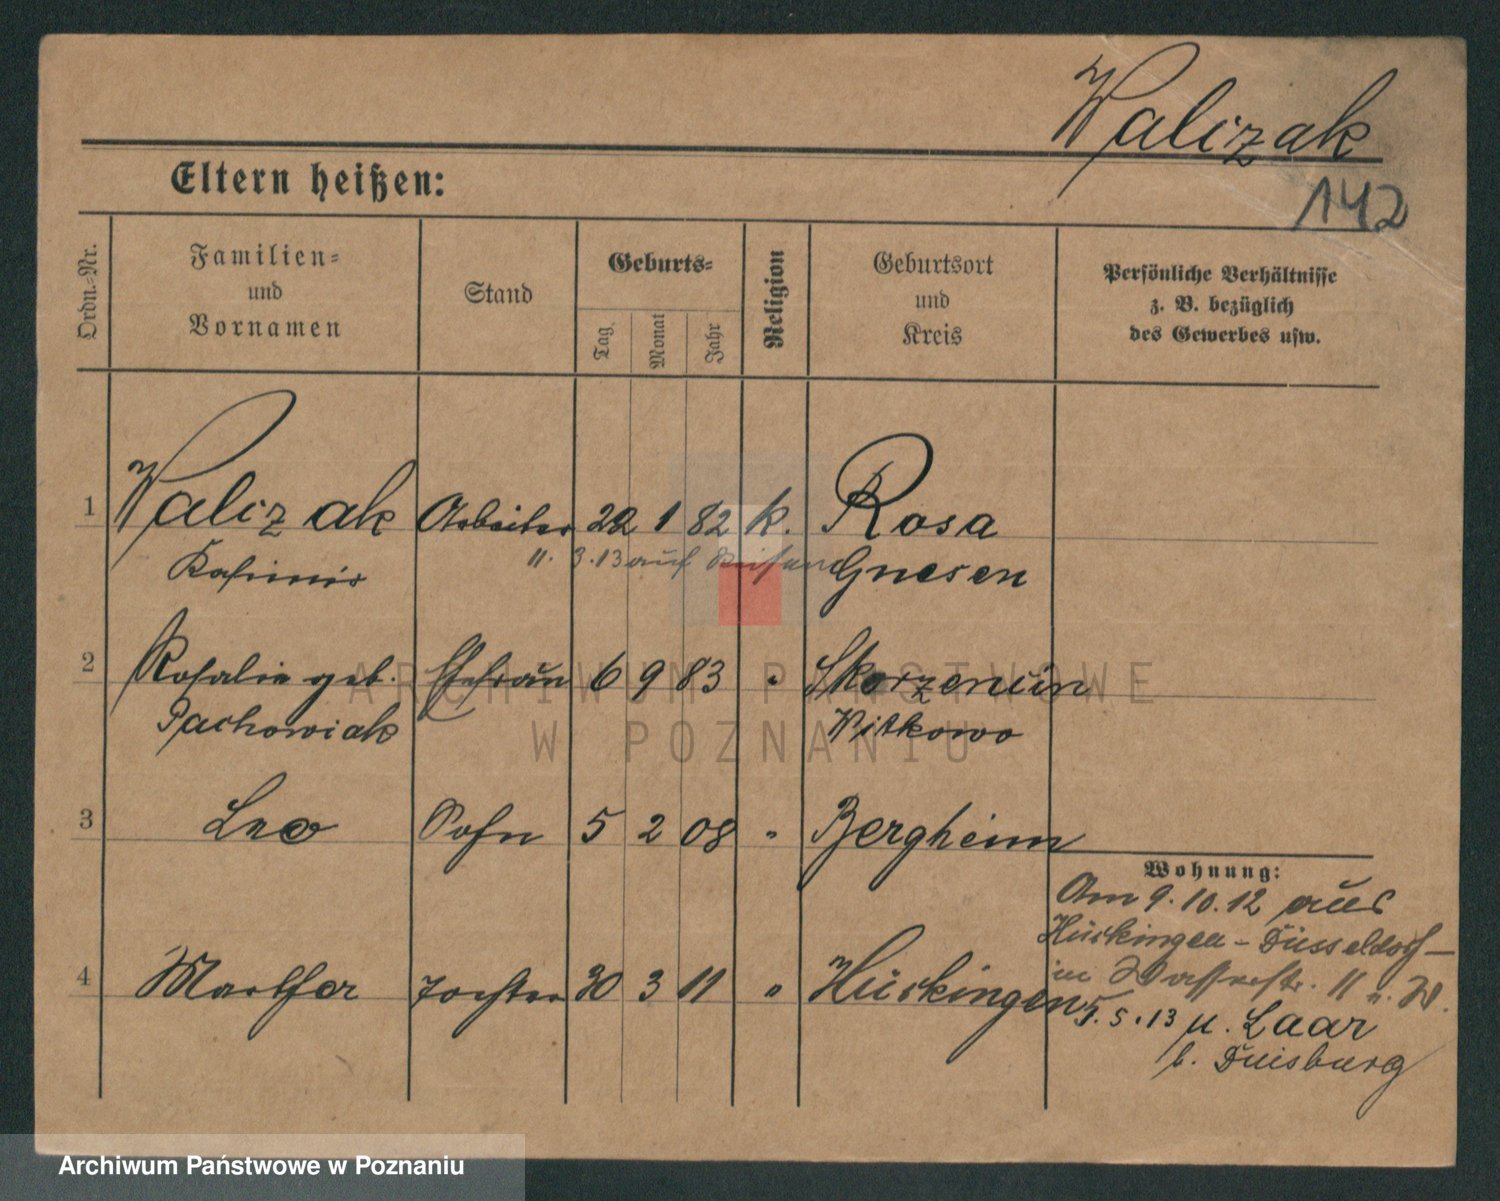 Walczak
142
Eltern heißen:
Ordn.-Nr.
Familien-
und
Vornamen
Stand
Geburts-
Tag.
Monat
Jahr
Religion
Geburtsort
und
Kreis
Persönliche Verhältnisse
z. B. bezüglich
des Gewerbes usw.
1 Walczak Arbeiter 22 1 82 k. Rosa
11. 3. 13 auf Reisen
Kasimir Gnesen
2 Rosalie geb. Ehefrau 6 9 83 " Skorzencin
Pachowiak Witkowo
3 Leo Sohn 5 2 08 " Bergheim
Wohnung:
Am 9. 10. 12 aus
Hückingen - Düsseldorf -
4 Martha Tochter 30 3 11 " Hückingen
in Wasserstr. 11 u. W.
5. 13 u. Laar
b. Duisburg
ARCHIWUM PAŃSTWOWE
W POZNANIU
Archiwum Państwowe w Poznaniu